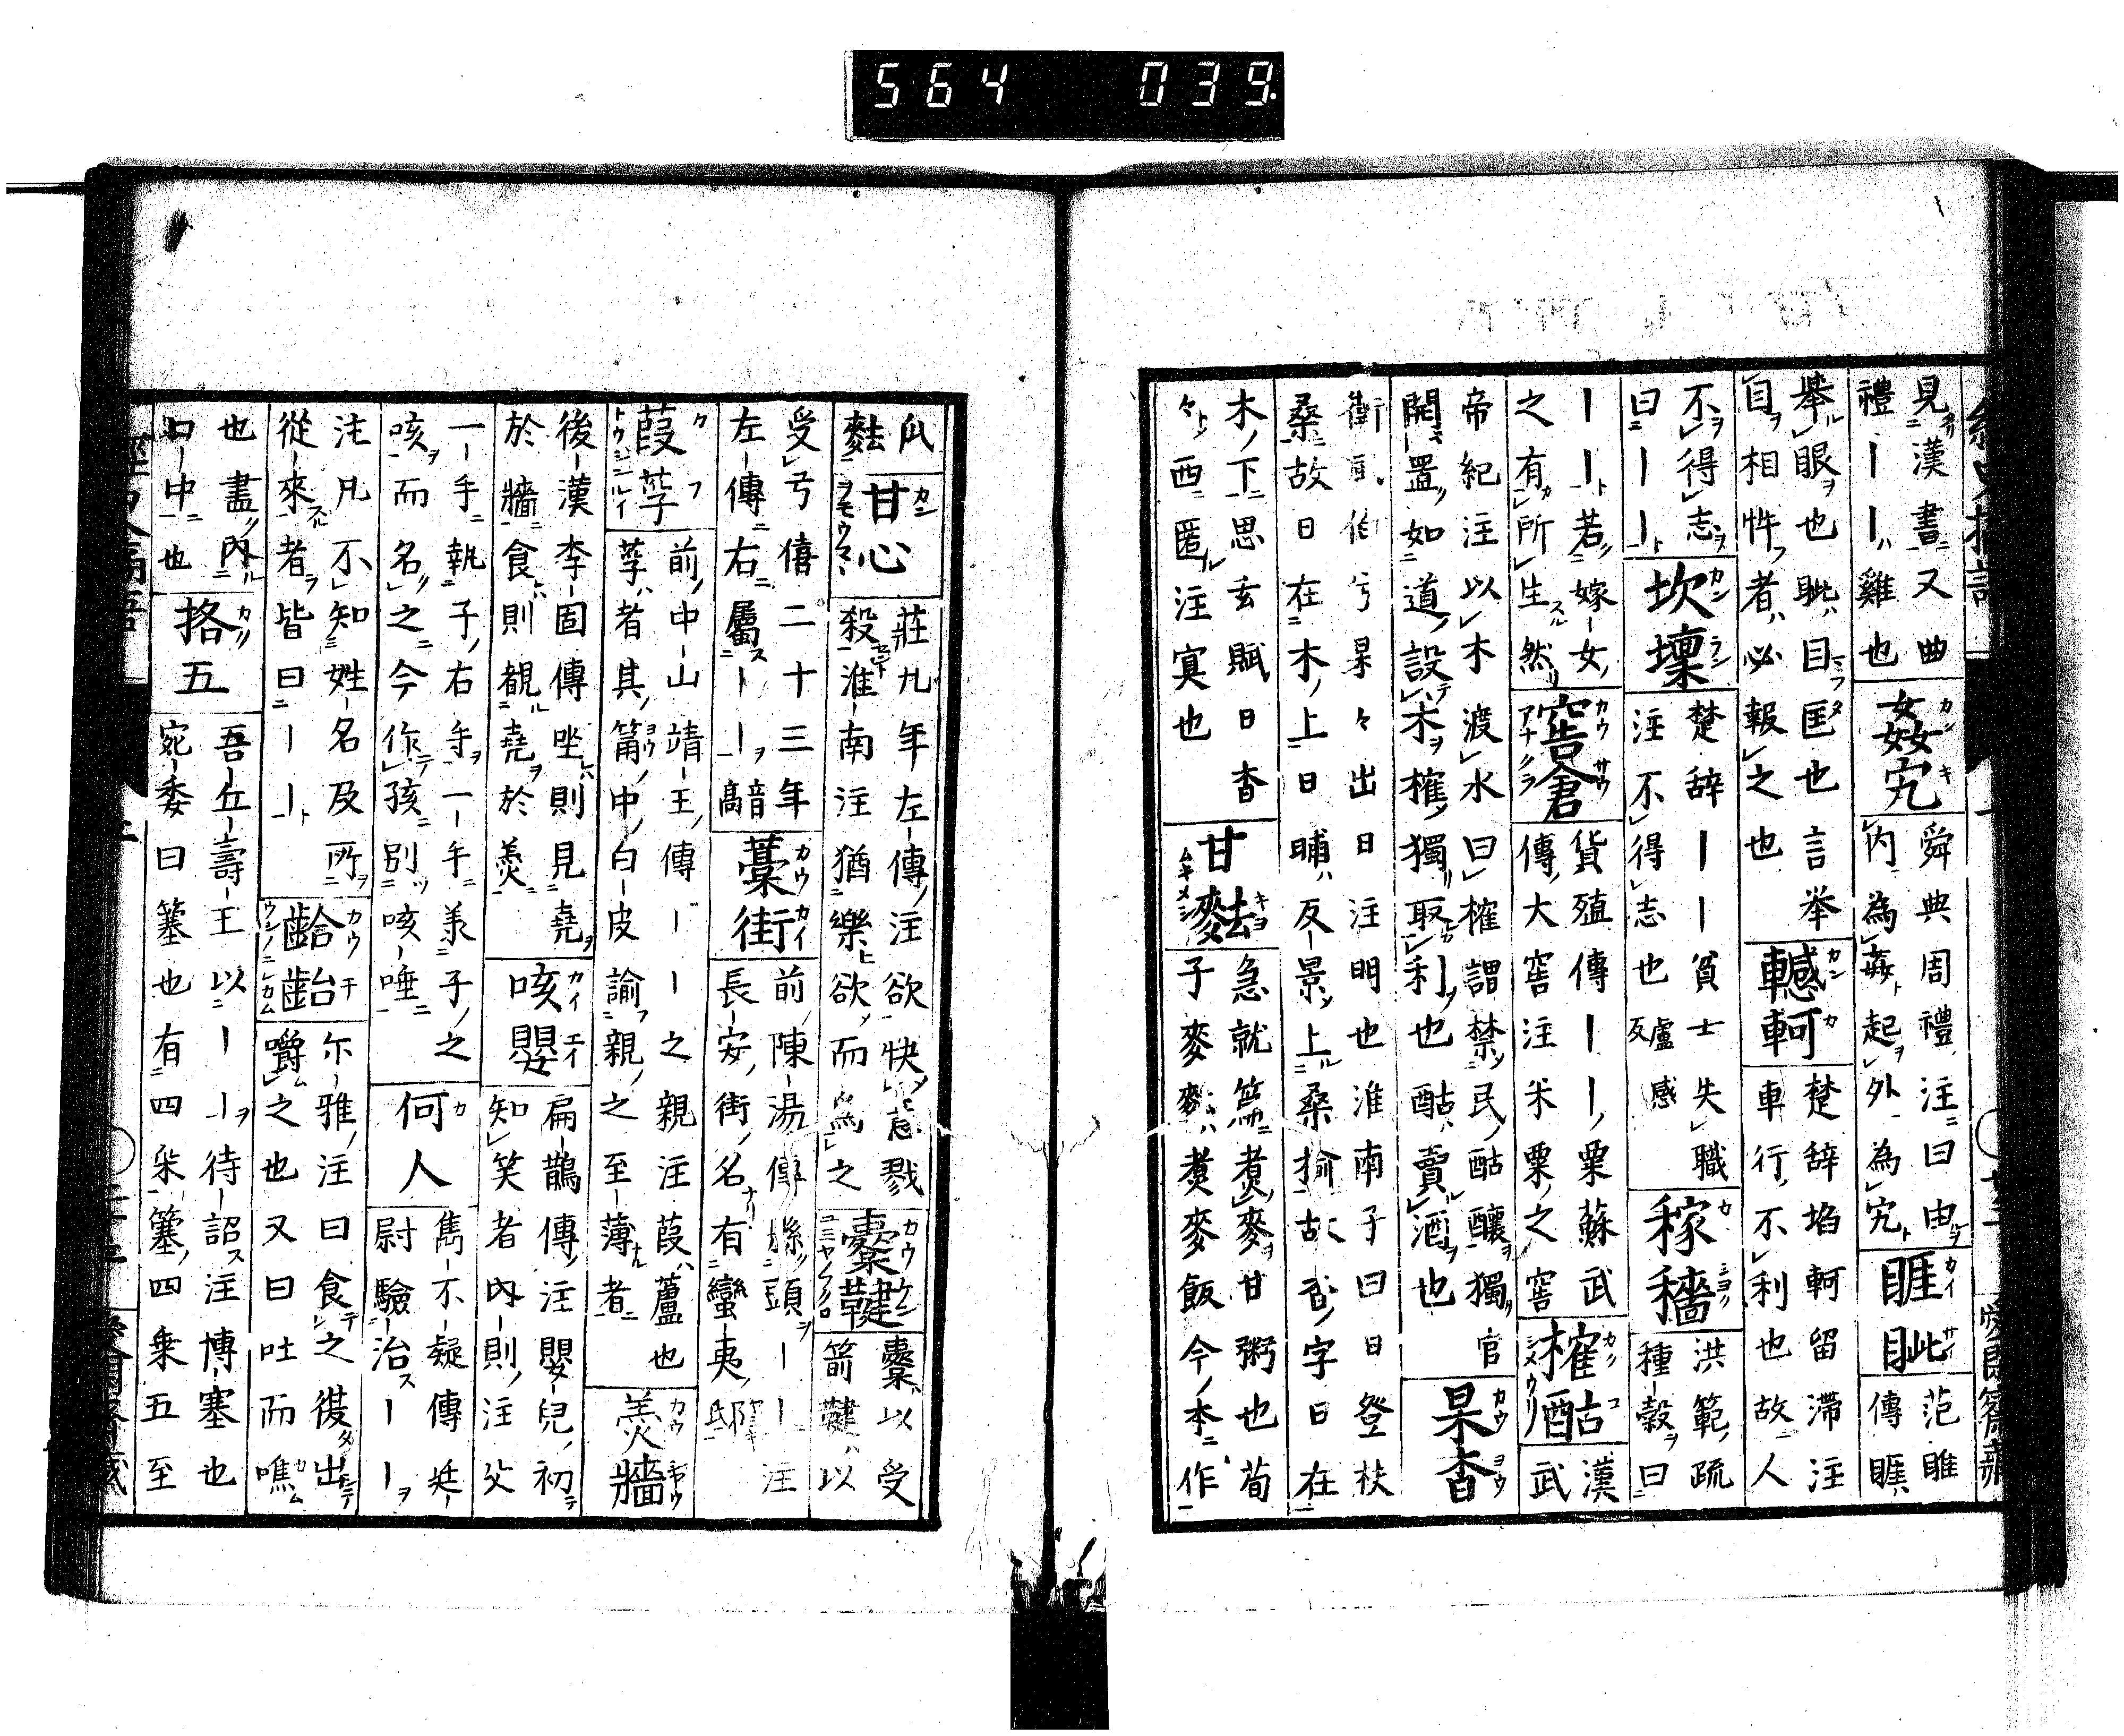 564 039
見漢書又曲
禮——雞也
姦宄
舜典周禮注曰由
內為姦起外為宄
睚眦
范雎
傳睚
舉眼也眦目匡也言舉
目相忤者必報之也
轗軻
楚辞埳軻留滞注
車行不利也故人
不得志
曰——
坎壈
楚辞——貧士失職
注不得志也盧感反
稼穡
洪範疏
種穀曰
——若嫁女
之有所生然
窖倉
貨殖傳——粟蘇武
傳大窖注米粟之窖
榷酤
漢
武
帝紀注以木渡水曰榷謂禁民酤釀獨官
開置如道設木榷獨取利也酤賣酒也
杲杳
衛風伯兮杲々出日注明也淮南子曰日登扶
桑故日在木上日晡反景上桑榆故杳字日在
木下思玄賦日杳
々西匿注冥也
甘麮
急就篇煮麥甘粥也荀
子麥煑麥飯今本作
瓜
麮
甘心
莊九年左傳注欲快意戮
殺淮南注猶樂欲而為之
櫜鞬
櫜以受
箭鞬以
受弓僖二十三年
左傳右屬——
藁街
前陳湯傳縣頭——注
長安街名有蠻夷邸
葭莩
前中山靖王傳——之親注葭蘆也
莩者其筩中白皮諭親之至薄者
羹牆
後漢李固傳坐則見堯
於牆食則覩堯於羹
咳嬰
扁鵲傳注嬰兒初
知笑者內則注父
一手執子右手一手美子之
咳而名之今作孩別咳唾
何人
雋不疑傳廷
尉驗治——
注凡不知姓名及所
從來者皆曰——
齝
尓雅注曰食之復出
嚼之也又曰吐而噍
也盡內
口中也
挌五
吾丘壽王以——待詔注博塞也
宛委曰簺也有四采簺四乗五至